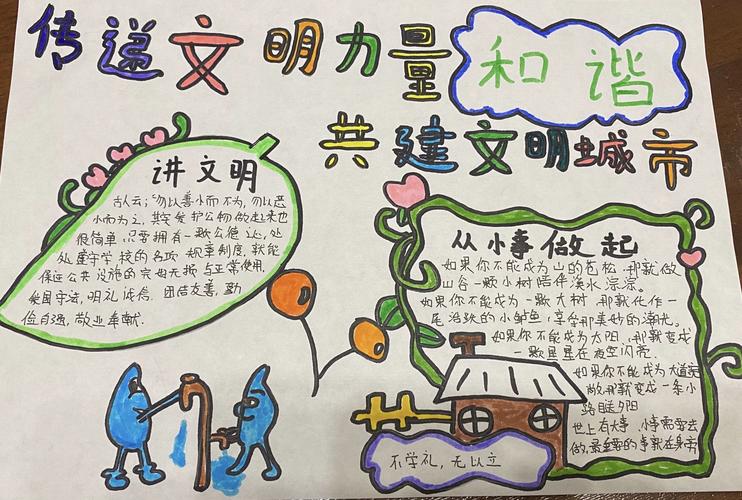 传递文明力量
和谐
共建文明城市
讲文明
古人云；“勿以善小而不为，勿以恶
小而为之，其实爱护公物做起来也
很简单，只要拥有一颗公德心，处
处遵守学校的各项规章制度，就能
保证公共设施的完好无损与正常使用，
爱国守法，明礼诚信，团结友善，勤
俭自强，敬业奉献.
从小事做起
如果你不能成为山的苍松，那就做
山谷一颗小树陪伴溪水淙淙。
如果你不能成为一颗大树，那就化作一
尾活跃的小鲈鱼，享学那美妙的湖光。
如果你不能成为太阳，那就变成
一颗星星在夜空闪亮.
如果你不能成为大道
那就变成一条小
路目送夕阳
世上有大事，小事需要去
做，最重要的事就在身旁
不学礼，无以立